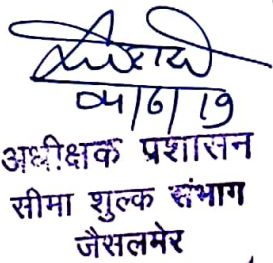 04/6/19
अधीक्षक प्रशासन
सीमा शुल्क संभाग
जैसलमेर